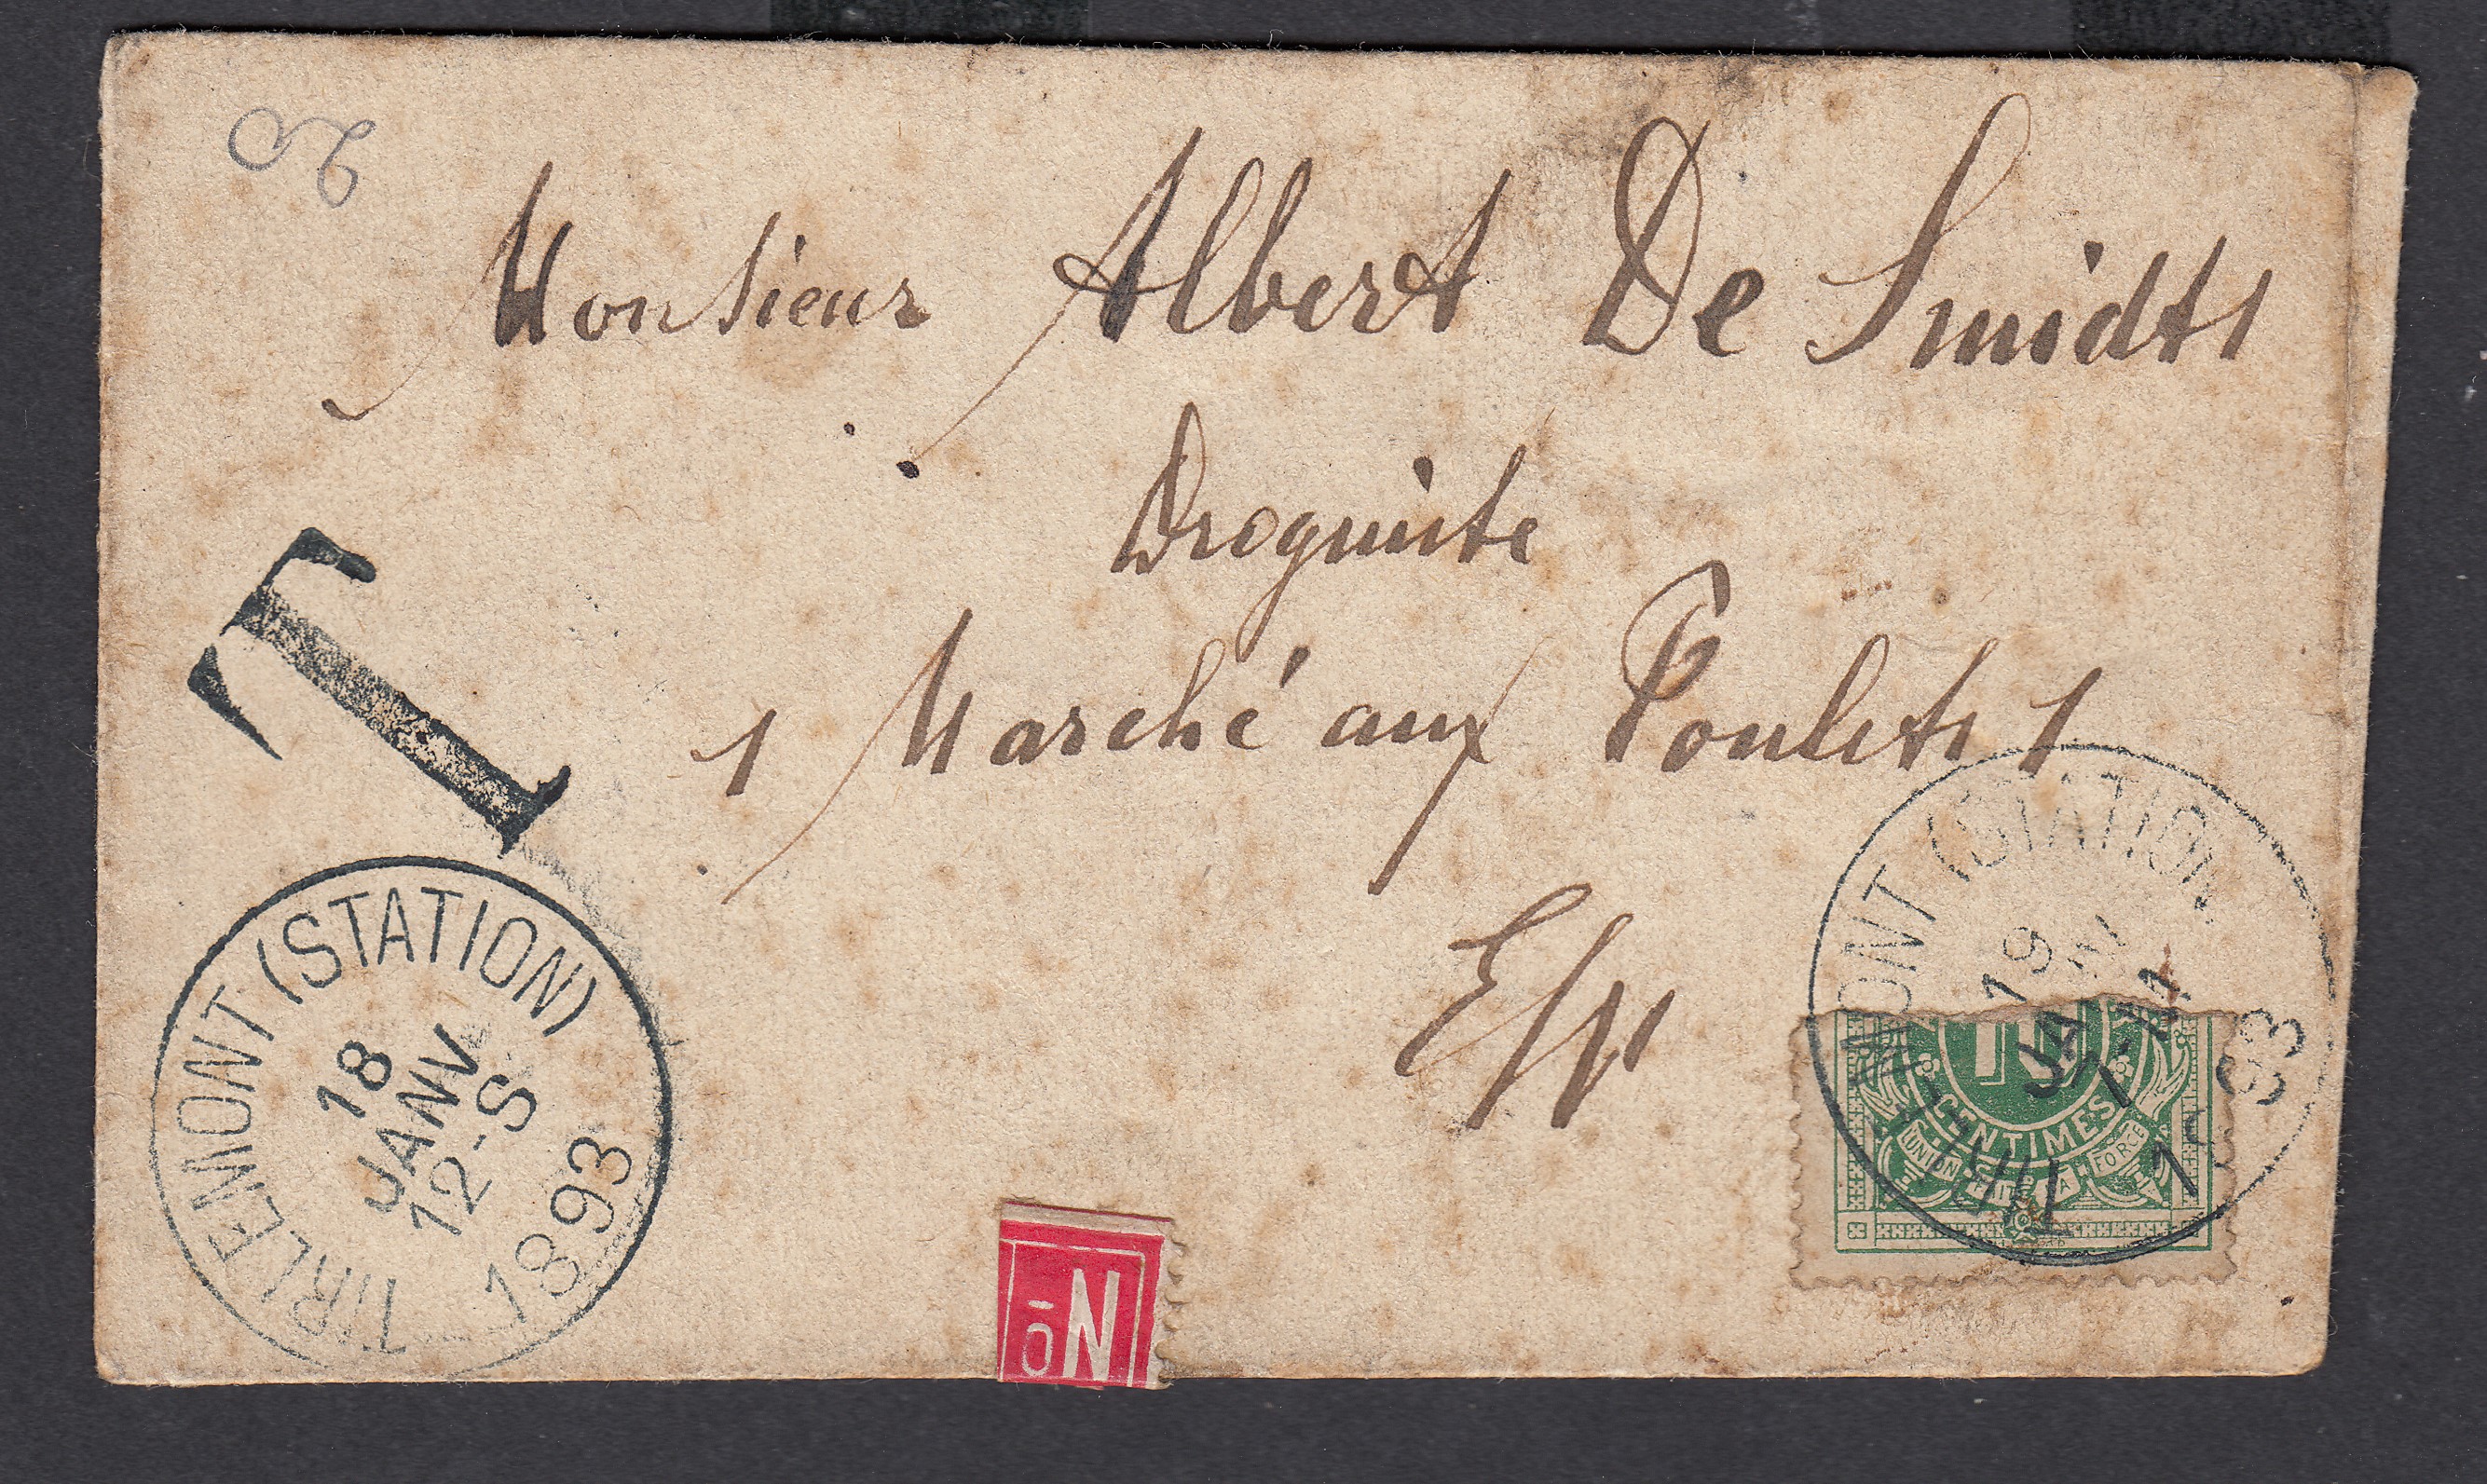 20
Monsieur Albert De Smidts
Droguiste
1 Marché aux Poulets 1
E/V
T
TIRLEMONT (STATION)
18
JANV
12-S
1893
TIRLEMONT (STATION)
19
JANV
93
10
CENTIMES
UNION FAIT LA FORCE
No